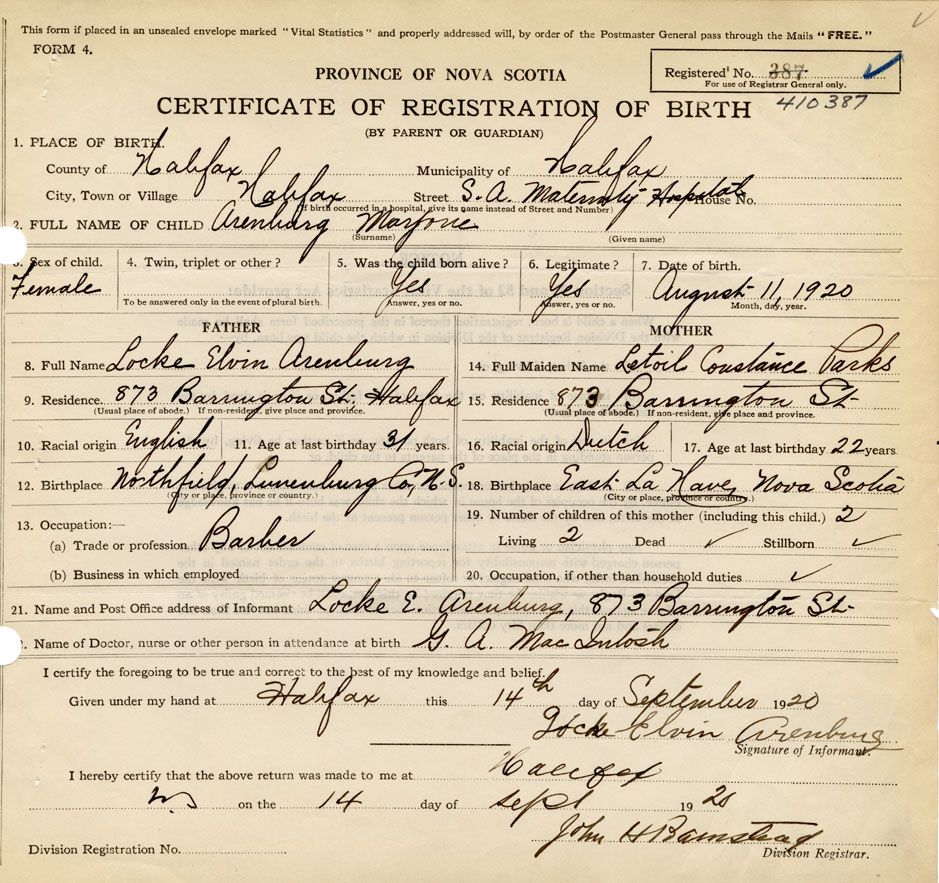 This form if placed in an unsealed envelope marked "Vital Statistics" and properly addressed will, by order of the Postmaster General pass through the Mails "FREE."
FORM 4.
Registered No. 387
For use of Registrar General only.
410387
PROVINCE OF NOVA SCOTIA
CERTIFICATE OF REGISTRATION OF BIRTH
(BY PARENT OR GUARDIAN)
1. PLACE OF BIRTH.
County of Halifax Municipality of Halifax
City, Town or Village Halifax Street S. A. Maternity Hospital House No.
(If birth occurred in a hospital, give its name instead of Street and Number)
2. FULL NAME OF CHILD Arenburg Marjorie
(Surname) (Given name)
3. Sex of child. 4. Twin, triplet or other? 5. Was the child born alive? 6. Legitimate? 7. Date of birth.
Female Yes Yes August 11, 1920
To be answered only in the event of plural birth. Answer, yes or no. Answer, yes or no. Month, day, year.
FATHER MOTHER
8. Full Name Locke Elvin Arenburg 14. Full Maiden Name Letoil Constance Parks
9. Residence 873 Barrington St. Halifax 15. Residence 873 Barrington St
(Usual place of abode.) If non-resident, give place and province. (Usual place of abode.) If non-resident, give place and province.
10. Racial origin English 11. Age at last birthday 31 years. 16. Racial origin Dutch 17. Age at last birthday 22 years
12. Birthplace Northfield, Lunenburg Co, N.S. 18. Birthplace East La Have, Nova Scotia
(City or place, province or country.) (City or place, province or country.)
13. Occupation:— 19. Number of children of this mother (including this child.) 2
(a) Trade or profession Barber Living 2 Dead ✓ Stillborn ✓
(b) Business in which employed 20. Occupation, if other than household duties ✓
21. Name and Post Office address of Informant Locke E. Arenburg, 873 Barrington St
Name of Doctor, nurse or other person in attendance at birth G. A. MacIntosh
I certify the foregoing to be true and correct to the best of my knowledge and belief.
Given under my hand at Halifax this 14th day of September 1920
Locke Elvin Arenburg
Signature of Informant.
I hereby certify that the above return was made to me at Halifax
on the 14 day of sept 1920
John H Barnstead
Division Registrar.
Division Registration No.